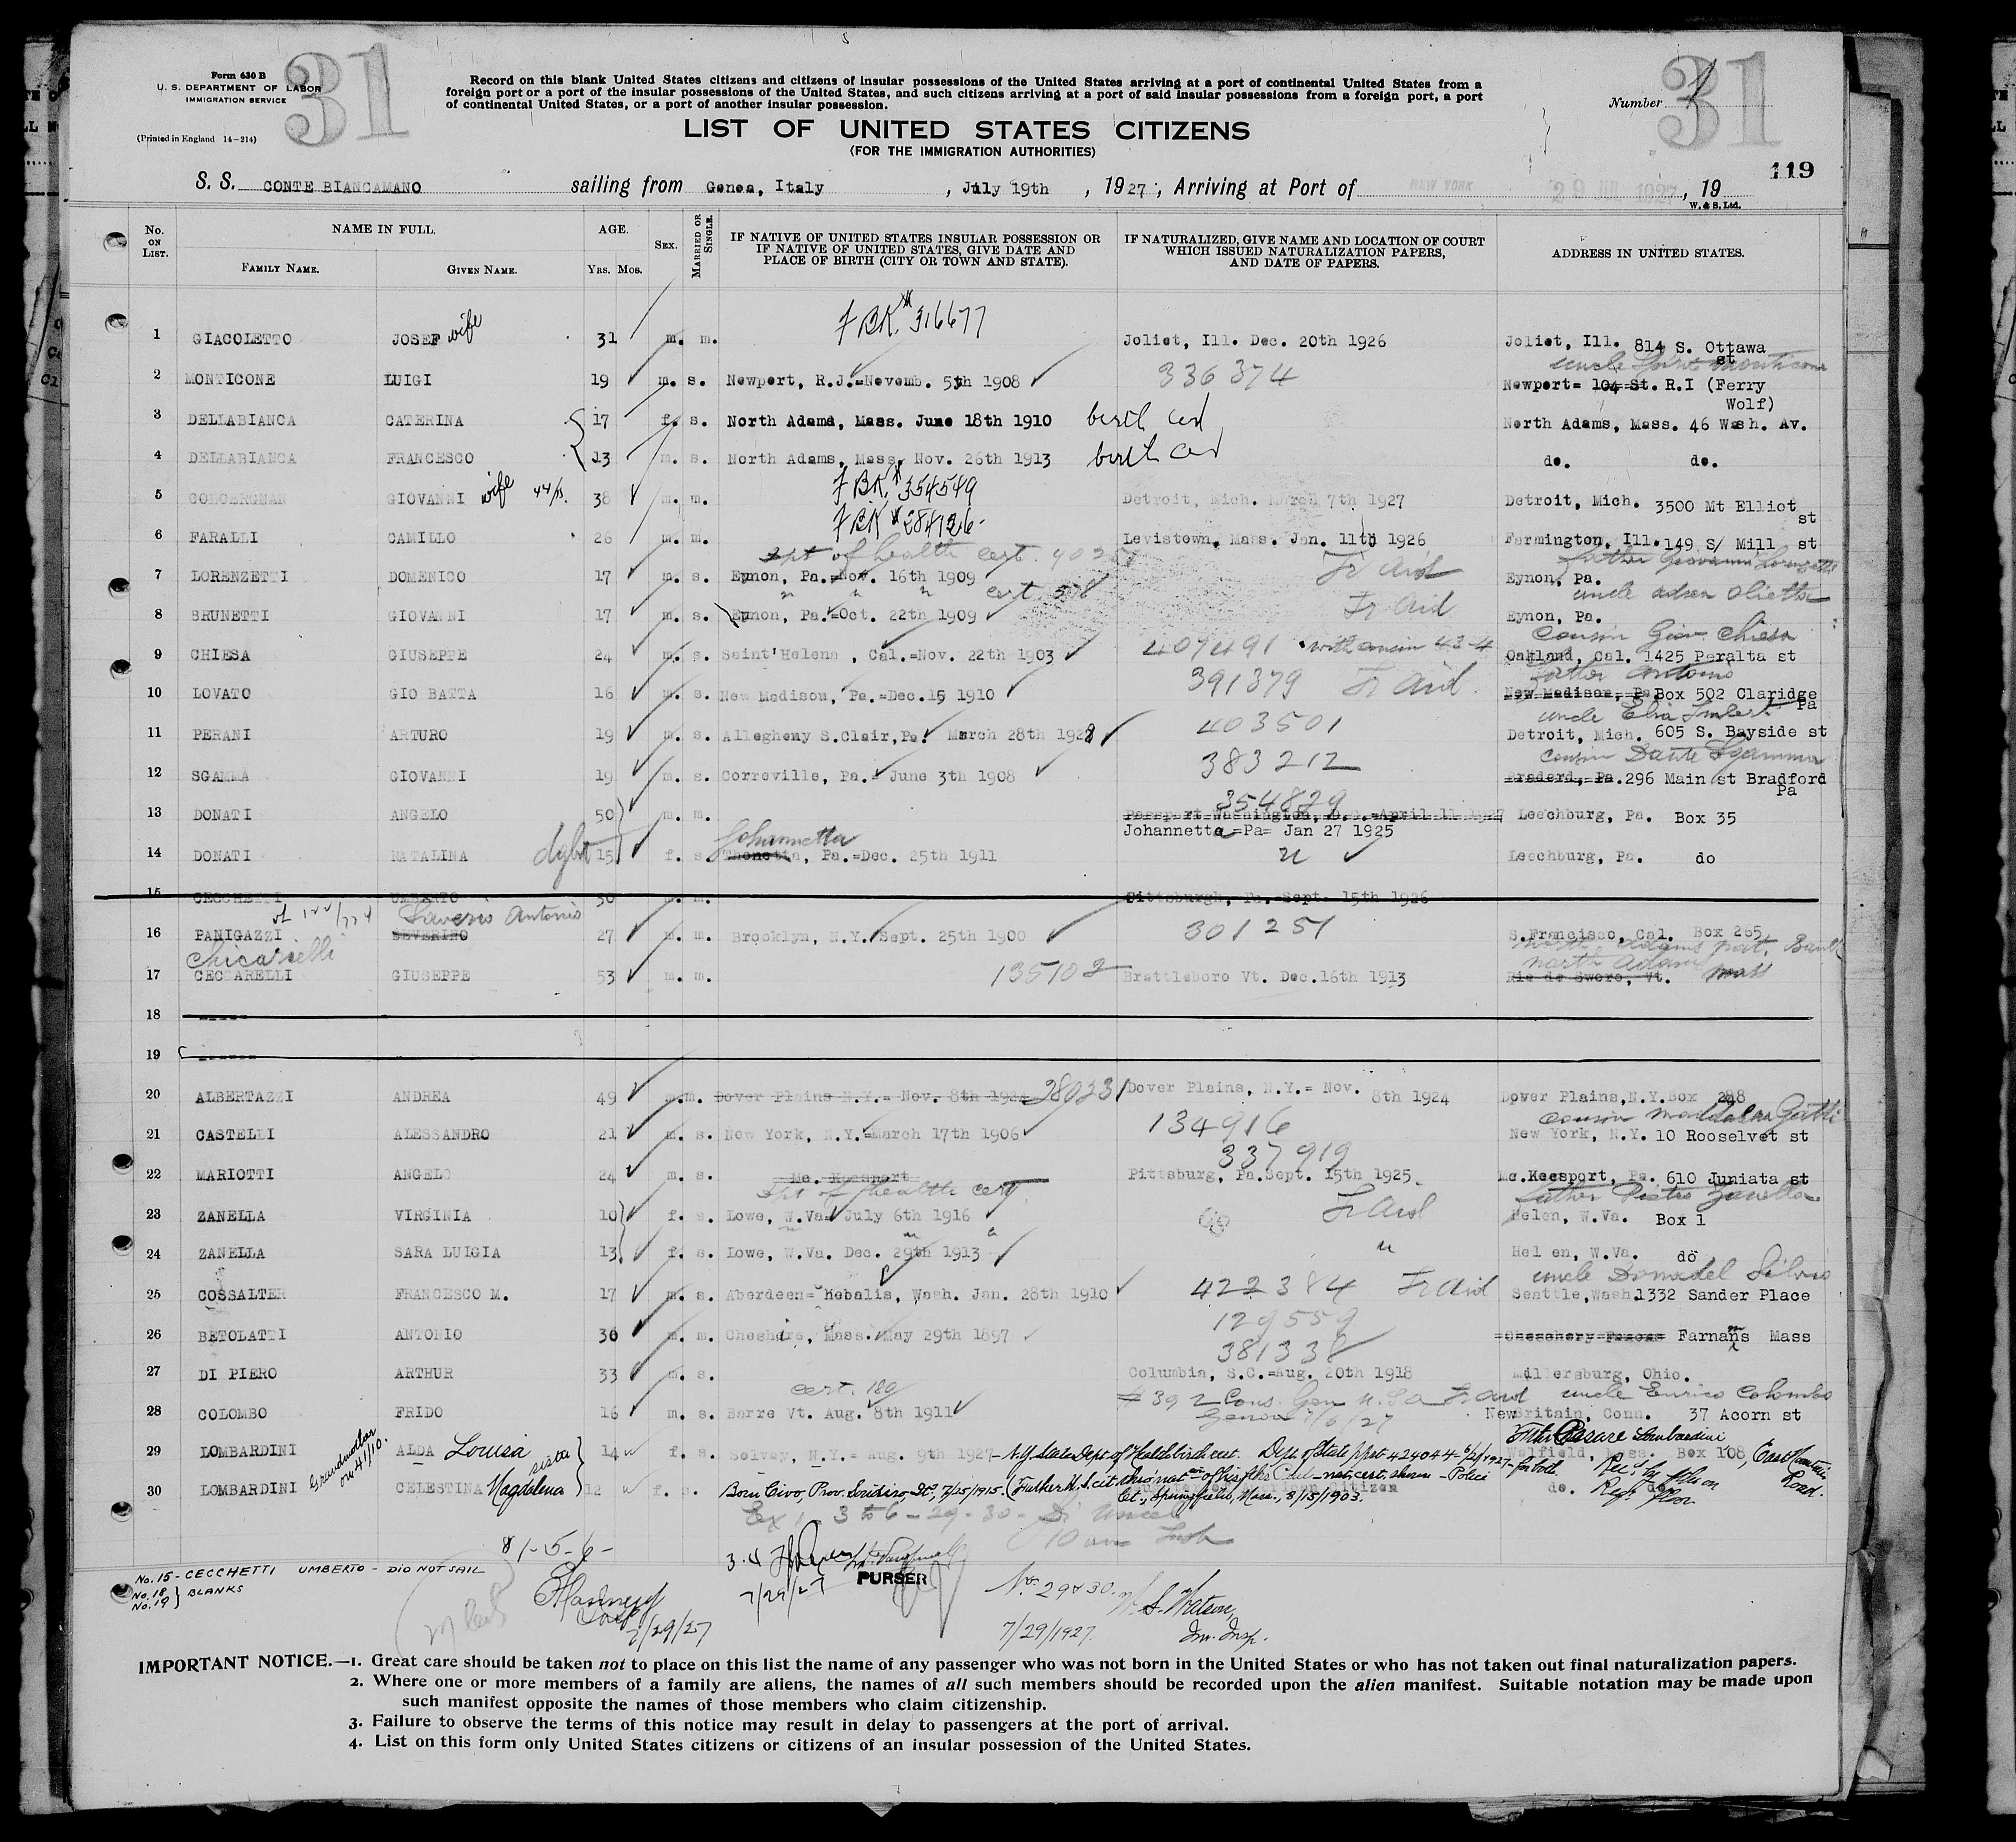 31
31
Form 630 B
U. S. DEPARTMENT OF LABOR
IMMIGRATION SERVICE
(Printed in England 14-214)
Record on this blank United States citizens and citizens of insular possessions of the United States arriving at a port of continental United States from a
foreign port or a port of the insular possessions of the United States, and such citizens arriving at a port of said insular possessions from a foreign port, a port
of continental United States, or a port of another insular possession.
Number
LIST OF UNITED STATES CITIZENS
(FOR THE IMMIGRATION AUTHORITIES)
119
S. S. CONTE BIANCAMANO sailing from Genoa, Italy , July 19th , 1927, Arriving at Port of NEW YORK 29 JUL 1927, 19
W. & S. Ltd.
No. ON LIST. NAME IN FULL. FAMILY NAME. GIVEN NAME. AGE. YRS. MOS. SEX. MARRIED OR SINGLE. IF NATIVE OF UNITED STATES INSULAR POSSESSION OR IF NATIVE OF UNITED STATES, GIVE DATE AND PLACE OF BIRTH (CITY OR TOWN AND STATE). IF NATURALIZED, GIVE NAME AND LOCATION OF COURT WHICH ISSUED NATURALIZATION PAPERS, AND DATE OF PAPERS. ADDRESS IN UNITED STATES.
1 GIACOLETTO JOSEF wife 31 m. m. 316677 Joliet, Ill. Dec. 20th 1926 Joliet, Ill. 814 S. Ottawa st
uncle
2 MONTICONE LUIGI 19 m. s. Newport, R.J.=Novemb. 5th 1908 336374 Newport= 104 St. R.I (Ferry Wolf)
3 DELLABIANCA CATERINA 17 f. s. North Adams, Mass. June 18th 1910 birth cert North Adams, Mass. 46 Wash. Av.
4 DELLABIANCA FRANCESCO 13 m. s. North Adams, Mass, Nov. 26th 1913 birth cert do. do.
5 GIOVANNI wife 38 m. m. 354549 Detroit, Mich. March 7th 1927 Detroit, Mich. 3500 Mt Elliot st
6 FARALLI CAMILLO 26 m. m. 284126 Levistown, Mass. Jan. 11th 1926 Farmington, Ill. 149 S/ Mill st
of health cert. father Giovanni
7 LORENZETTI DOMENICO 17 m. s. Eynon, Pa.=Nov. 16th 1909 Eynon, Pa.
cert. 578 uncle
8 BRUNETTI GIOVANNI 17 m. s. Eynon, Pa.=Oct. 22th 1909 Eynon, Pa.
cousin Giov Chiesa
9 CHIESA GIUSEPPE 24 m. s. Saint'Helena , Cal.=Nov. 22th 1903 407491 Oakland, Cal. 1425 Peralta st
father Antonio
10 LOVATO GIO BATTA 16 m. s. New Madison, Pa.=Dec.15 1910 391379 New Madison, Pa Box 502 Claridge Pa
uncle
11 PERANI ARTURO 19 m. s. Allegheny S.Clair,Pa. March 28th 1928 403501 Detroit, Mich. 605 S. Bayside st
cousin Dante Sgamma
12 SGAMMA GIOVANNI 19 m. s. Correville, Pa. June 3th 1908 383212 Braderd, Pa. 296 Main st Bradford Pa
354829
13 DONATI ANGELO 50 m. m. Passport Washington, D.C.=April 11 1927 Leechburg, Pa. Box 35
Johannetta =Pa= Jan 27 1925
Johannetta
14 DONATI NATALINA 15 f. s. Thonetta, Pa.=Dec. 25th 1911 Leechburg, Pa. do
15 CECCHETTI UMBERTO 30 m. m. Pittsburgh, Pa. Sept. 15th 1926
Saverio Antonio
16 PANIGAZZI SEVERINO 27 m. m. Brooklyn, N.Y. Sept. 25th 1900 301251 S.Francisco, Cal. Box 265
Chicarielli north Adams
17 CECCARELLI GIUSEPPE 53 m. m. 135702 Brattleboro Vt. Dec.16th 1913 Rie de Sworo, Vt. mass
18
19
20 ALBERTAZZI ANDREA 49 m. m. Dover Plains N.Y.= Nov. 8th 1924 280231 Dover Plains, N.Y.= Nov. 8th 1924 Dover Plains,N.Y.Box 288
cousin
21 CASTELLI ALESSANDRO 21 m. s. New York, N.Y.=March 17th 1906 134916 New York, N.Y. 10 Rooselvet st
337919
22 MARIOTTI ANGELO 24 m. s. Mc. Keesport Pittsburg, Pa.Sept. 15th 1925. Mc.Keesport, Pa. 610 Juniata st
of health cert father Pietro Zanella
23 ZANELLA VIRGINIA 10 f. s. Lowe, W.Va= July 6th 1916 Helen, W.Va. Box 1
24 ZANELLA SARA LUIGIA 13 f. s. Lowe, W.Va. Dec. 29th 1913 Helen, W.Va. do
uncle Donadel Silvio
25 COSSALTER FRANCESCO M. 17 m. s. Aberdeen= Hebalis, Wash. Jan. 28th 1910 422384 Seattle,Wash.1332 Sander Place
129559
26 BETOLATTI ANTONIO 30 m. m. Cheshire, Mass. May 29th 1897 Farnams Mass
381338
27 DI PIERO ARTHUR 33 m. s. Columbia, S.C.=Aug. 20th 1918 Millersburg, Ohio.
cert. 180 # 392 Cons. Gen U.S.A uncle Enrico Colombo
28 COLOMBO FRIDO 16 m. s. Barre Vt. Aug. 8th 1911 Genoa 7/6/27 New Britain, Conn. 37 Acorn st
Father Cesare Lombardini
29 LOMBARDINI ALDA Louisa 14 f. s. Solvay, N.Y.= Aug. 9th 1927 - N.Y. State Dept. of Health birth cert. Dept. of State 424044 Box 108,
30 LOMBARDINI CELESTINA Magdalena sister 12 f. s. Born Civo, Prov. Sondrio, 7/25/1915. (Father U.S. cit. nat. cert. shown - Police
Ct., Springfield, Mass., 8/15/1903. citizen do.
Grandmother
No. 15 - CECCHETTI UMBERTO - DID NOT SAIL
No. 18 } BLANKS
No. 19
7/29/27
PURSER
7/29/27
Nos. 29 & 30.
W. S. Watson,
7/29/1927. Im. Insp.
IMPORTANT NOTICE.—1. Great care should be taken not to place on this list the name of any passenger who was not born in the United States or who has not taken out final naturalization papers.
2. Where one or more members of a family are aliens, the names of all such members should be recorded upon the alien manifest. Suitable notation may be made upon
such manifest opposite the names of those members who claim citizenship.
3. Failure to observe the terms of this notice may result in delay to passengers at the port of arrival.
4. List on this form only United States citizens or citizens of an insular possession of the United States.